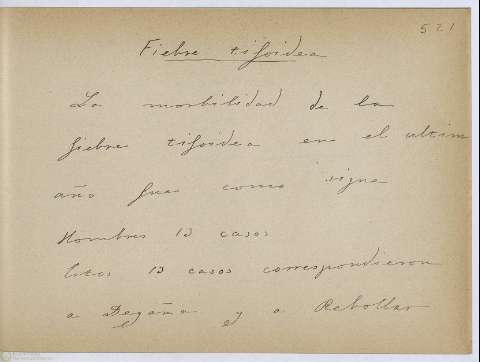 521
Fiebre tifoidea
La morbilidad de la
fiebre tifoidea en el ultim
año fue como sigue
Hombres 13 casos
Estos 13 casos correspondieron
a Degaña y a Rebollar